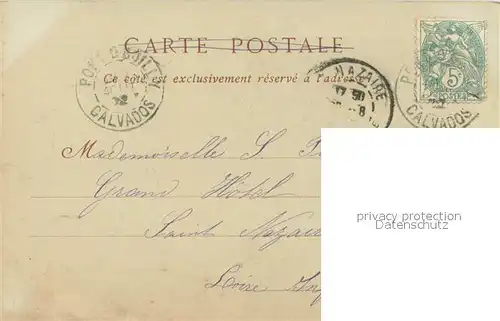 CARTE POSTALE
Ce côté est exclusivement réservé à l'adresse
CALVADOS
NAZAIRE
CALVADOS
5
Mademoiselle S.
Grand Hôtel
Saint Nazai
Loire Inf
privacy protection
Datenschutz